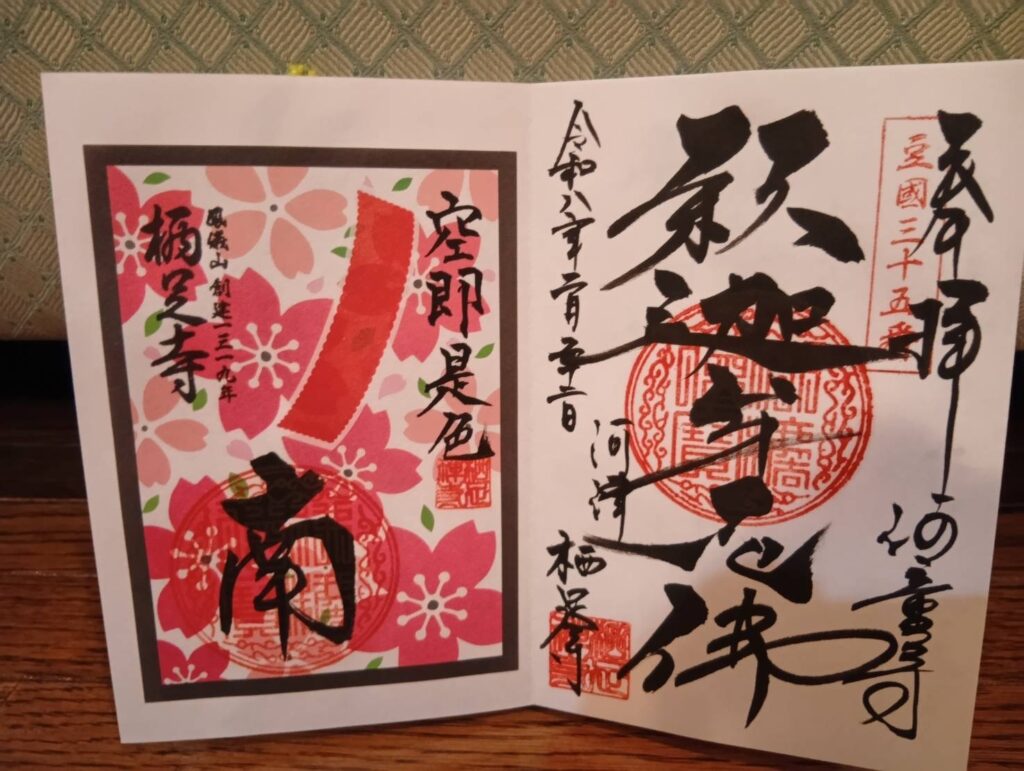 奉拝
豆國三十五番
河童寺
釈迦牟尼佛
令和八年二月
河津
栖足寺
空即是色
鳳儀山 創建一三一九年
栖足寺
南